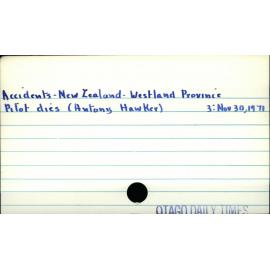 Accidents-New Zealand-Westland Province
Pilot dies (Antony Hawker) 3: Nov 30, 1971
OTAGO DAILY TIMES